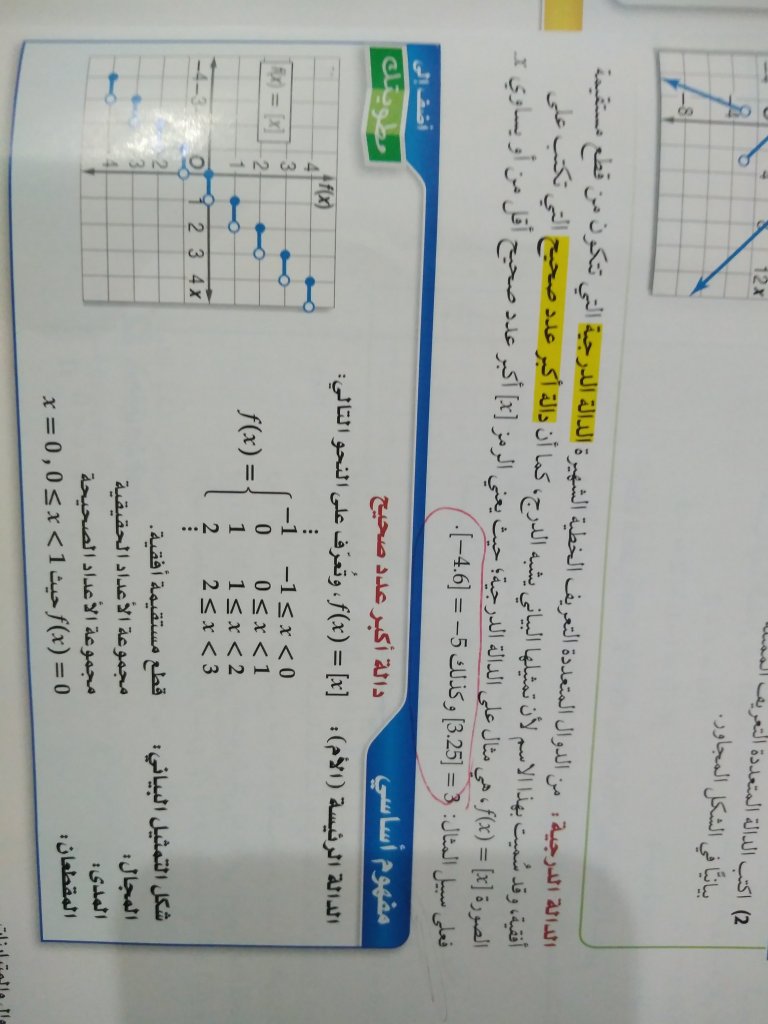 2) اكتب الدالة المتعددة التعريف الممثلة
بيانيًّا في الشكل المجاور.
-4
-8
4
12x
الدالة الدرجية: من الدوال المتعددة التعريف الخطية الشهيرة الدالة الدرجية التي تتكون من قطع مستقيمة
أفقية، وقد سُميت بهذا الاسم لأن تمثيلها البياني يشبه الدرج، كما أن دالة أكبر عدد صحيح التي تكتب على
الصورة f(x) = [x]، هي مثال على الدالة الدرجية؛ حيث يعني الرمز [x] أكبر عدد صحيح أقل من أو يساوي x.
فعلى سبيل المثال: [3.25] = 3 وكذلك [−4.6] = −5.
مفهوم أساسي
دالة أكبر عدد صحيح
أضف إلى
مطويتك
الدالة الرئيسة (الأم): f(x) = [x]، وتُعرّف على النحو التالي:
f(x) = {
⋮
−1 −1 ≤ x < 0
0 0 ≤ x < 1
1 1 ≤ x < 2
2 2 ≤ x < 3
⋮
شكل التمثيل البياني: قطع مستقيمة أفقية.
المجال: مجموعة الأعداد الحقيقية
المدى: مجموعة الأعداد الصحيحة
المقطعان: f(x) = 0 حيث x = 0 , 0 ≤ x < 1
f(x)
4
3
2
1
f(x) = [x]
-4 -3 O 1 2 3 4 x
2
3
4